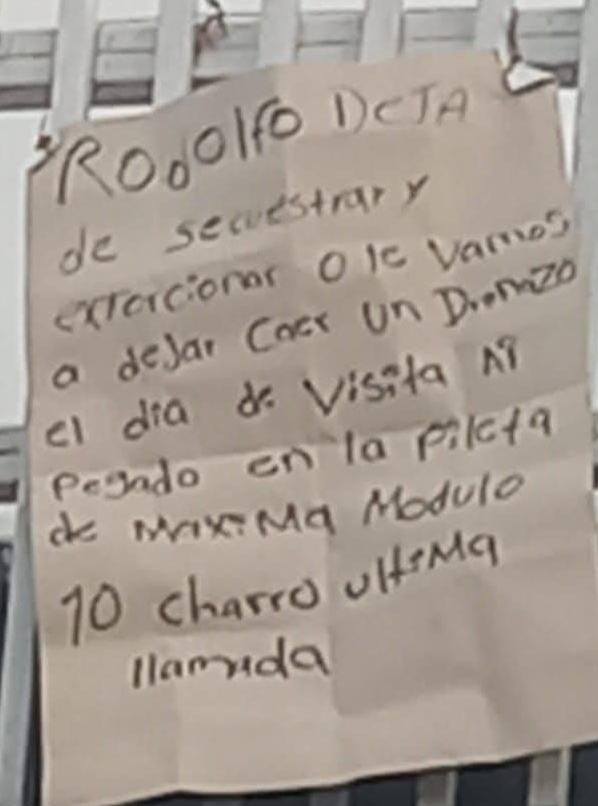 Rodolfo DeJA
de secuestrar y
extorcionar o le vamos
a dejar caer un Dronazo
el dia de visita Ai
Pegado en la pileta
de Maxima Modulo
10 charro ultima
llamada